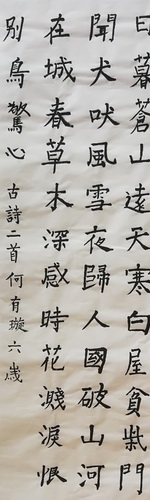 日暮蒼山遠天寒白屋貧柴門
聞犬吠風雪夜歸人國破山河
在城春草木深感時花濺淚恨
別鳥驚心 古詩二首何有璇六歲